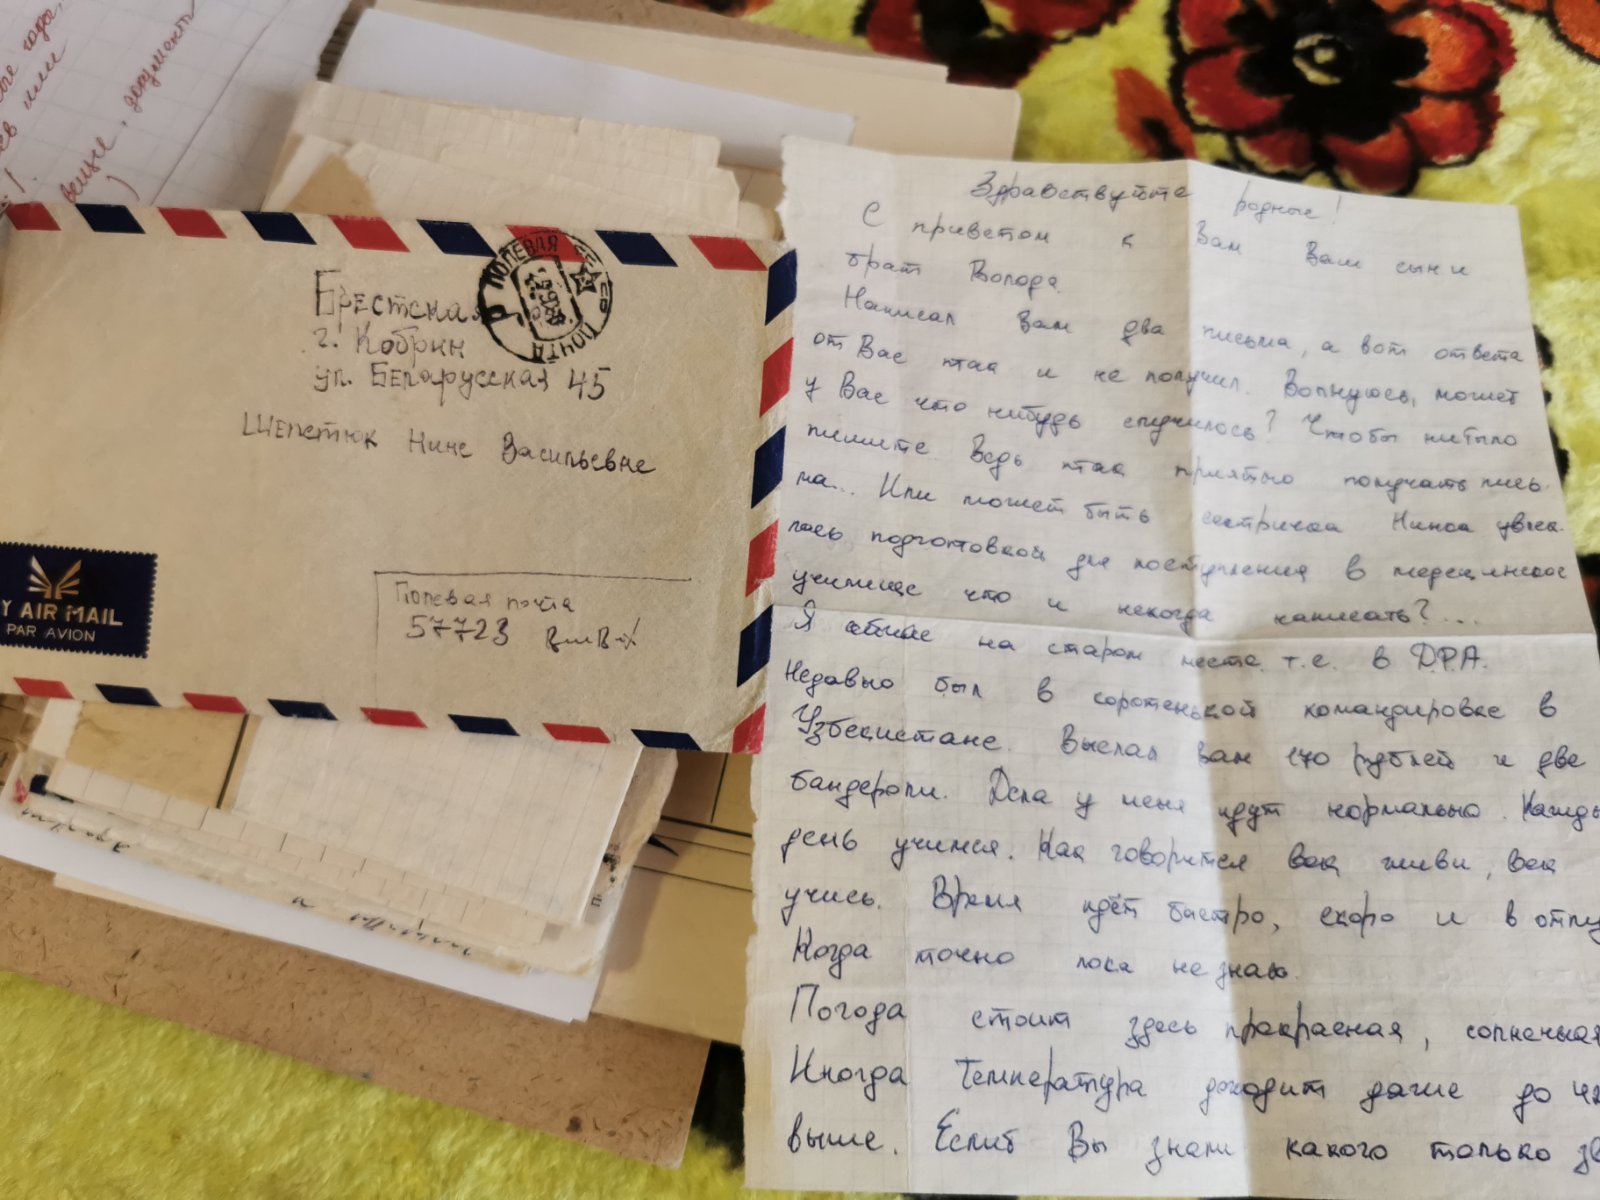 вещи, документы
)
Брестская
г. Кобрин
ул. Белорусская 45
Шепетюк Нине Васильевне
ПОЛЕВАЯ ПОЧТА
СССР
Y AIR MAIL
PAR AVION
Полевая почта
57723
Здравствуйте родные!
С приветом к Вам Ваш сын и
брат Володя.
Написал Вам два письма, а вот ответа
от Вас так и не получил. Волнуюсь, может
у Вас что нибудь случилось? Чтобы нибыло
пишите. Ведь так приятно получать пись-
ма... Или может быть сестричка Нинка увлек-
лась подготовкой для поступления в медецинское
училище что и некогда написать?...
Я сейчас на старом месте т.е. в ДРА.
Недавно был в коротенькой командировке в
Узбекистане. Выслал Вам 170 рублей и две
бандероли. Дела у меня идут нормально. Кажды
день учимся. Как говорится век живи, век
учись. Время идёт быстро, скоро и в отпу
Когда точно пока не знаю.
Погода стоит здесь прекрасная, солнечная
Иногда температура доходит даже до
выше. Еслиб Вы знали какого только зв